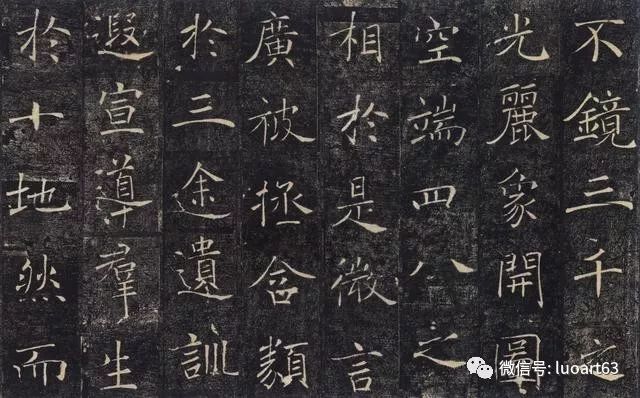 不鏡三千之
光麗象開圖
空端四八之
相於是微言
廣被拯含類
於三途遺訓
遐宣導群生
於十地然而
微信号: luoart63